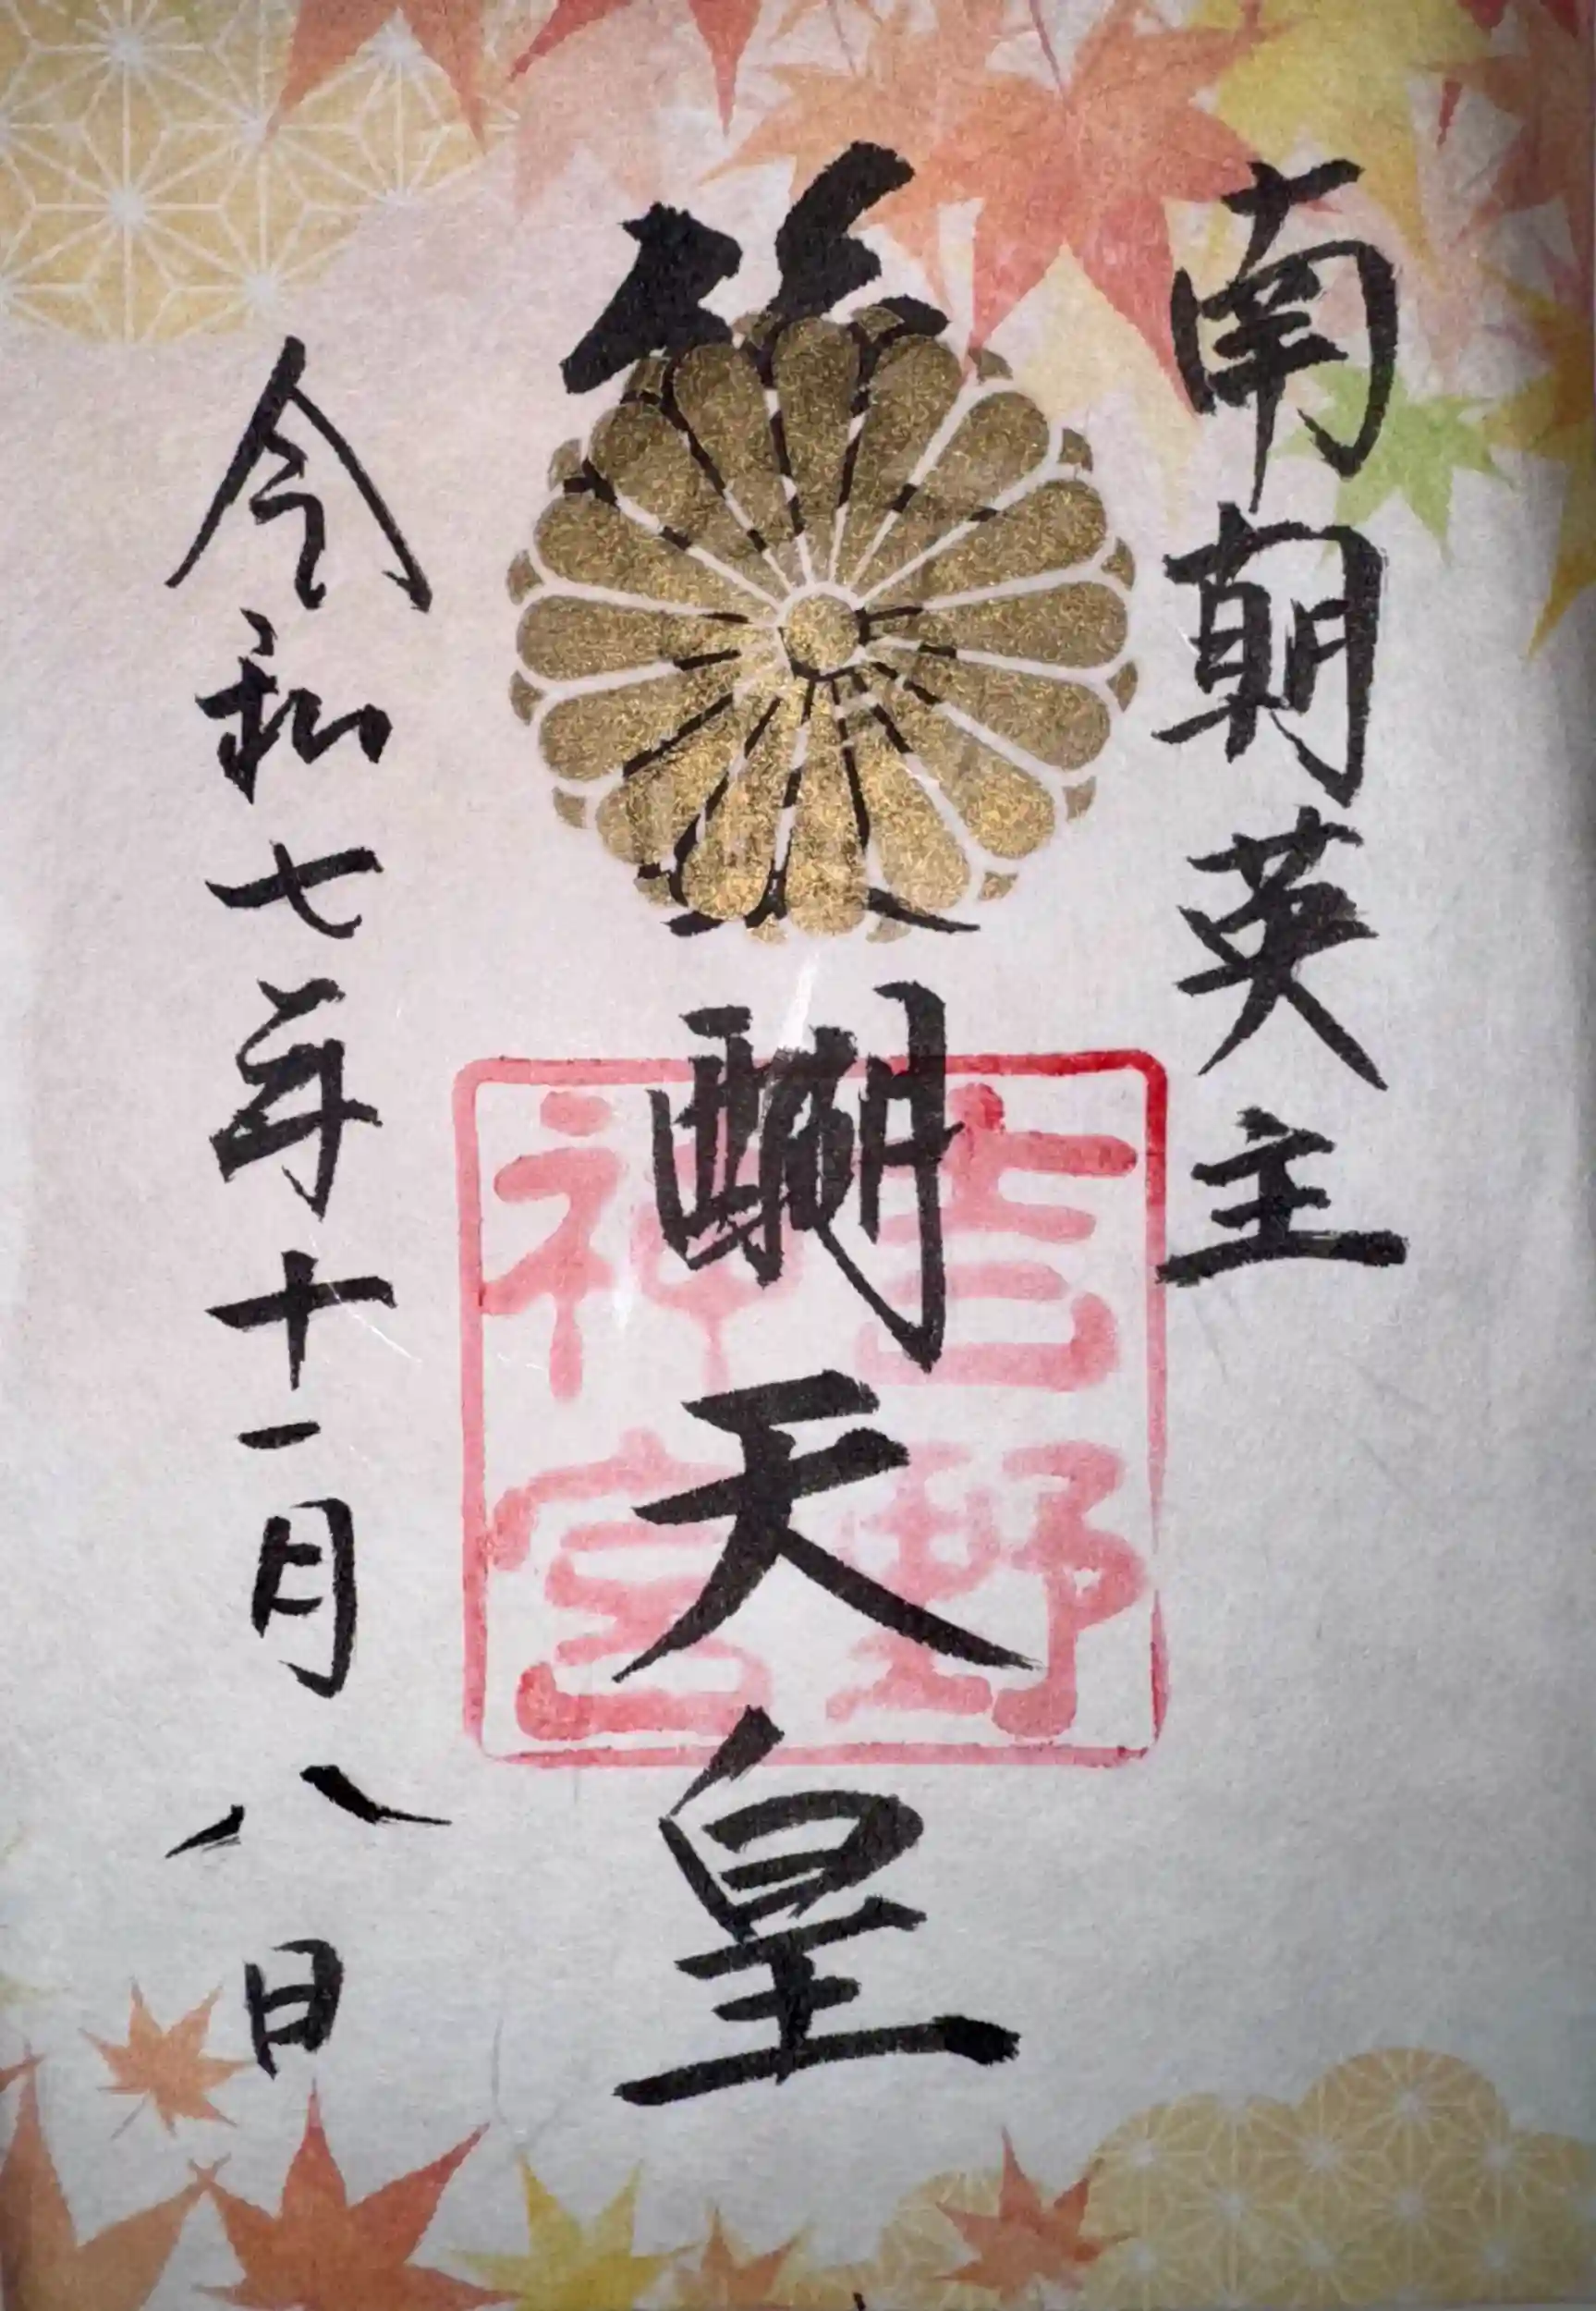 南朝英主
後醍醐天皇
令和七年十一月八日
吉野神宮